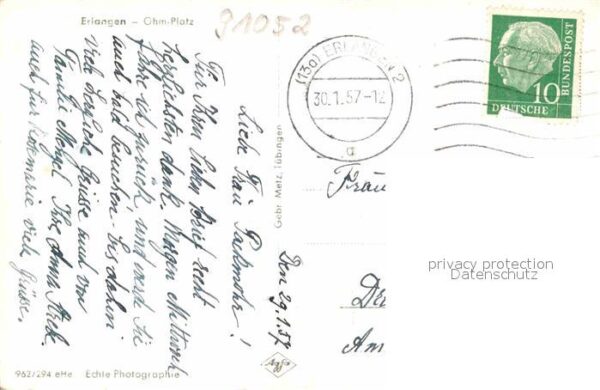 Erlangen - Ohm-Platz
91052
Den 29.1.57
Liebe Frau
Für Ihren lieben Brief recht
herzlichsten Dank. Morgen Mittwoch
fahre ich zurück und werde Sie
auch bald besuchen. bis dahin
Viele herzliche Grüsse und von
Familie Ihre Anna
auch für Rosemarie viele Grüsse.
962/294 eHe Echte Photographie
Gebr. Metz, Tübingen
(13a) ERLANGEN 2
30.1.57-12
a
10
DEUTSCHE
BUNDESPOST
Frau
privacy protection
Datenschutz